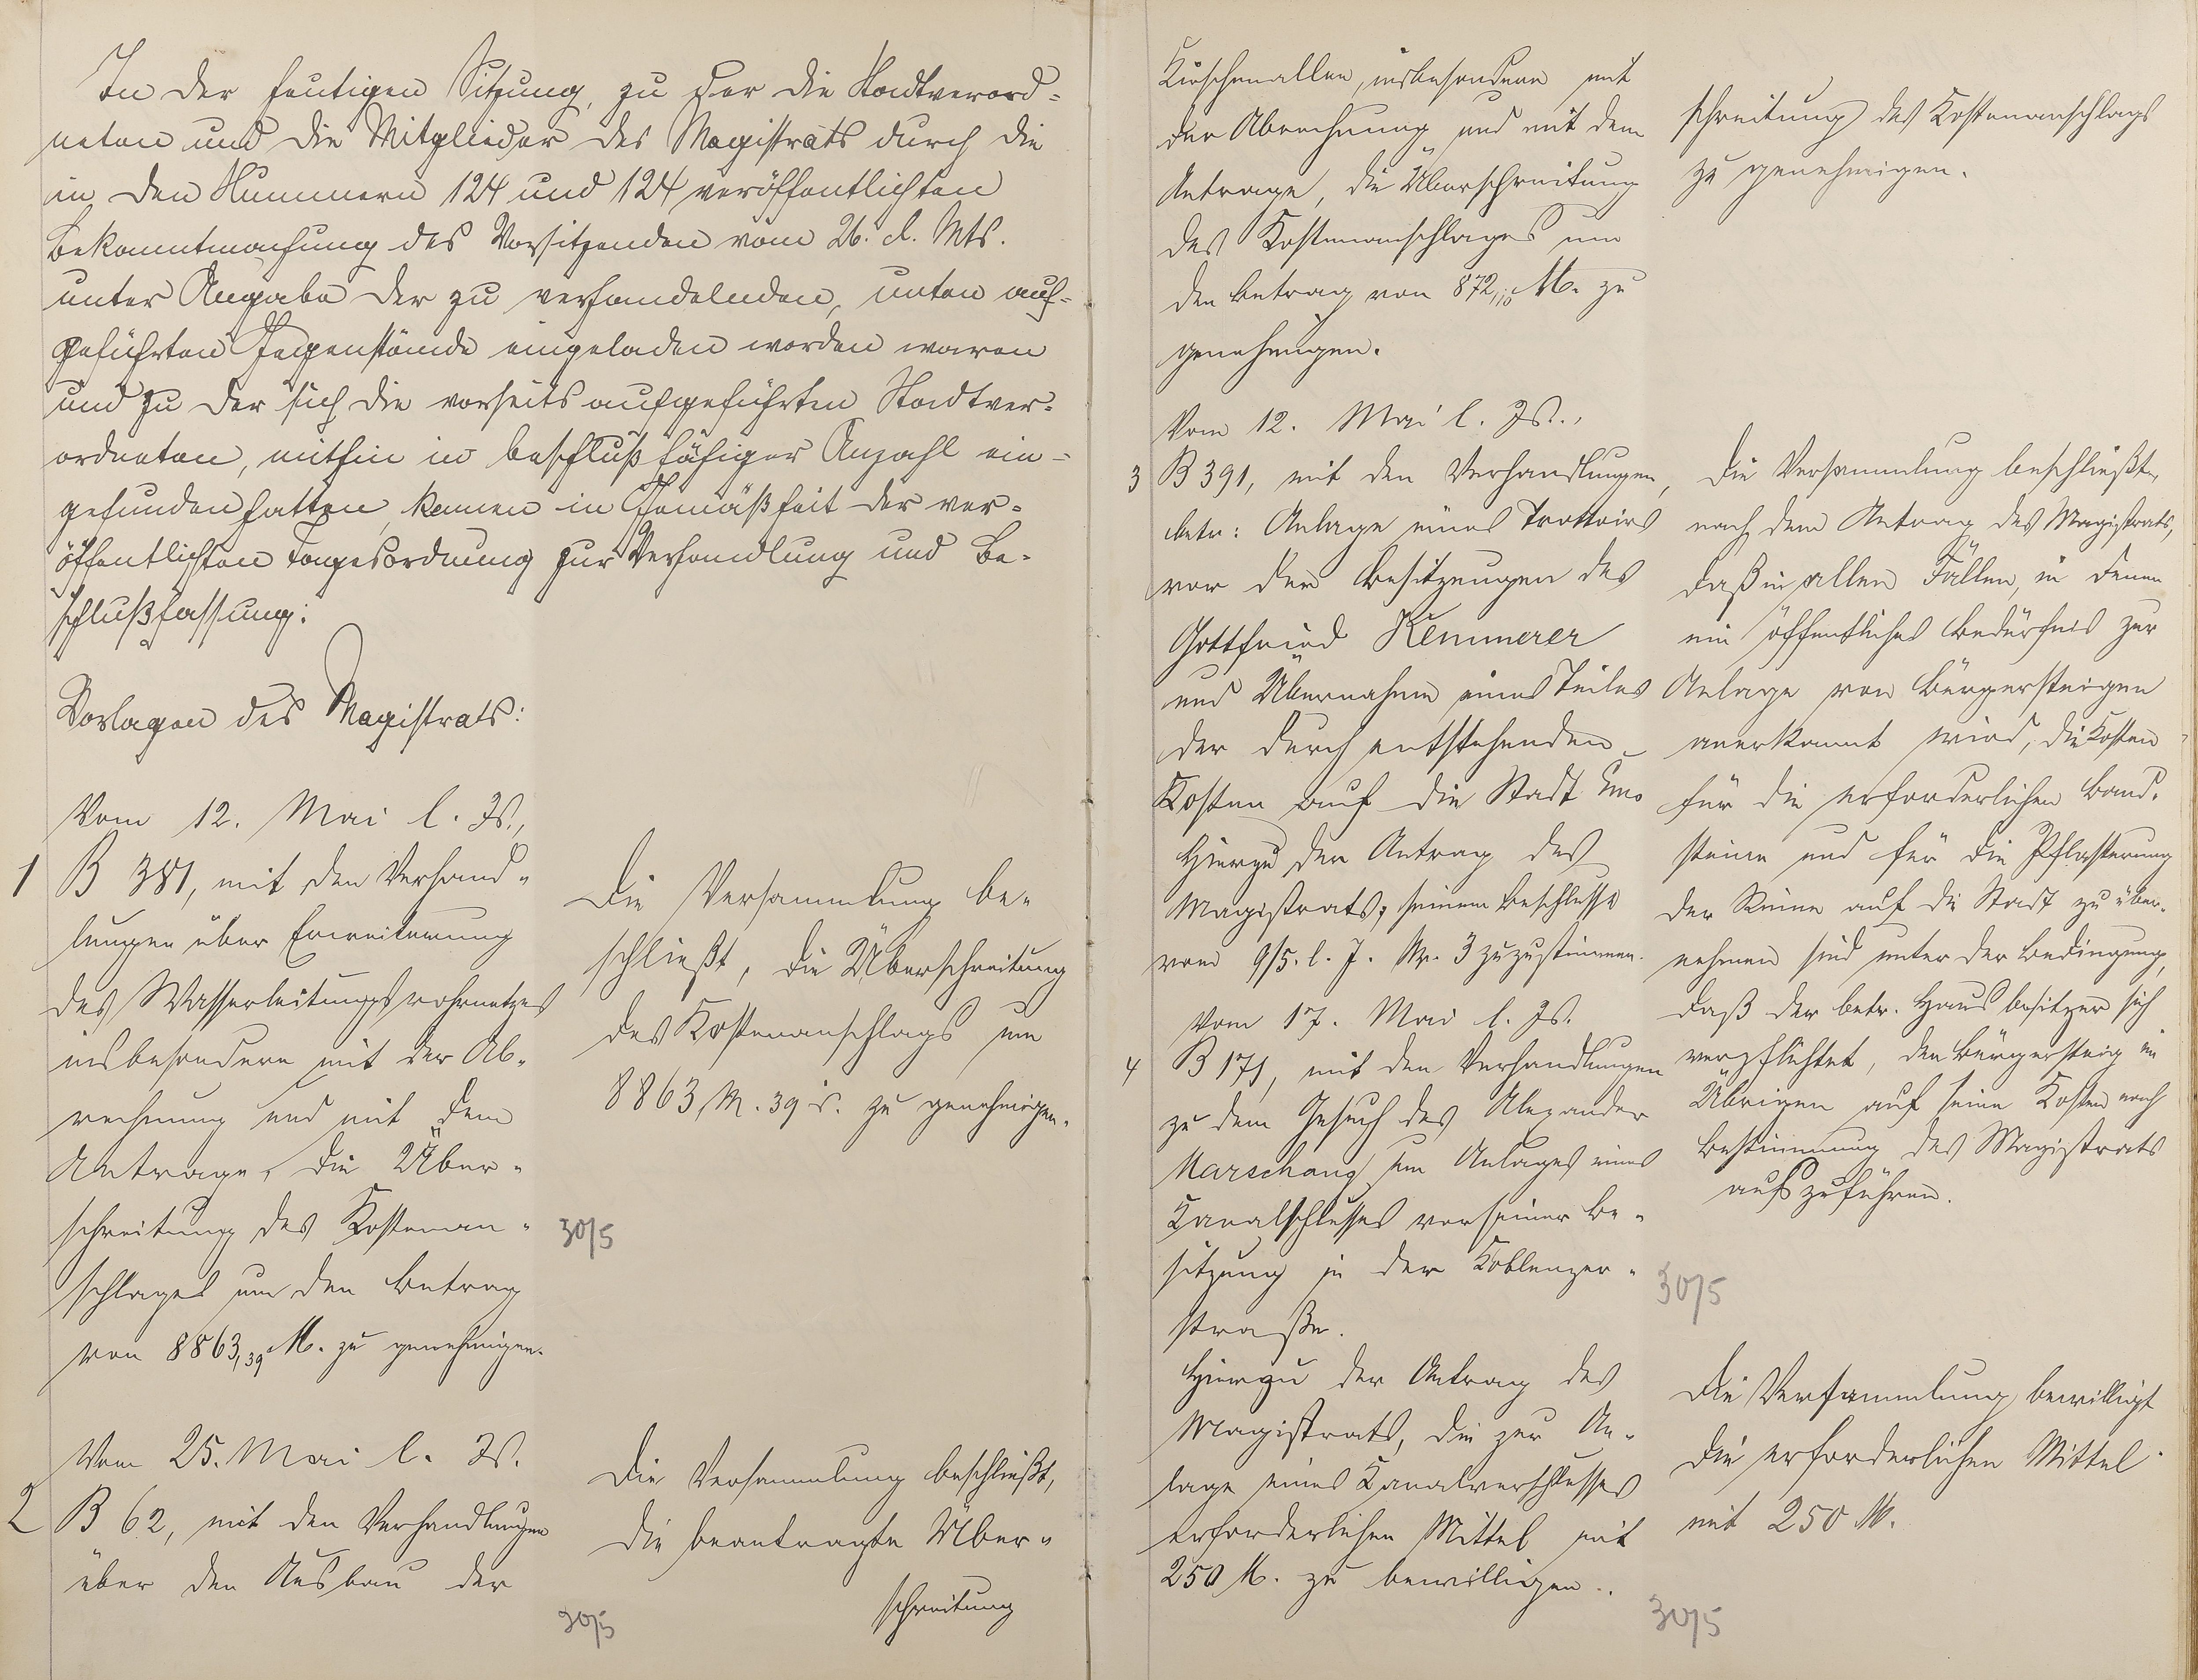 In der heutigen Sitzung, zu der die Stadtverord-
neten und die Mitglieder des Magistrats durch die
in den Nummern 124 und 124 veröffentlichten
Bekanntmachung des Vorsitzenden vom 26. d. Mts.
unter Angabe der zu verhandelnden, unten auf-
geführten Gegenstände eingeladen worden waren
und zu der sich die vorseits aufgeführten Stadtver-
ordneten, mithin in beschlußfähiger Anzahl ein-
gefunden hatten, kamen in Gemäßheit der ver-
öffentlichten Tagesordnung zur Verhandlung und Be-
schlußfassung:
Vorlagen des Magistrats:
Vom 12. Mai l. Js.,
1 B 381, mit den Verhand-
lungen über Erweiterung
des Wasserleitungsrohrnetzes
insbesondere mit der Ab-
rechnung und mit dem
Antrage, die Über-
schreitung des Kostenan-
schlages um den Betrag
von 8863,39 M. zu genehmigen.
Die Versammlung be-
schließt, die Überschreitung
des Kostenanschlags um
8863 M. 39 zu genehmigen.
30/5
Vom 25. Mai l. Js.
2 B 62, mit den Verhandlungen
über den Ausbau der
Die Versammlung beschließt,
die beantragte Über-
schreitung
30/5
Kirschenallee, insbesondere mit
der Abrechnung und mit dem
Antrage, die Überschreitung
des Kostenanschlages um
den Betrag von 872,10 M. zu
genehmigen.
schreitung des Kostenanschlags
zu genehmigen.
Vom 12. Mai l. Js.,
3 B 391, mit den Verhandlungen,
betr: Anlage eines Trottoirs
vor den Besitzungen des
Gottfried Kemmerer
und Übernahme eines Teiles
der durch entstehenden
Kosten auf die Stadt Ems
Hierzu der Antrag des
Magistrats, seinem Beschlusse
vom 9/5. l. J. Nr. 3 zuzustimmen.
Die Versammlung beschließt,
nach dem Antrag des Magistrats,
daß in allen Fällen, in denen
ein öffentliches Bedürfnis zur
Anlage von Bürgersteigen
anerkannt wird, die Kosten
für die erforderlichen Band-
steine und für die Pflasterung
der Rinne auf die Stadt zu über-
nehmen sind unter der Bedingung,
daß der betr. Hausbesitzer sich
verpflichtet, den Bürgersteig im
Übrigen auf seine Kosten nach
Bestimmung des Magistrats
auszuführen.
30/5
Vom 17. Mai l. Js.
4 B 171, mit den Verhandlungen
zu dem Gesuch des Alexander
Marschang um Anlages eines
Kanalschlusses vor seiner Be-
sitzung in der Koblenzer-
straße.
Hierzu der Antrag des
Magistrats, die zur An-
lage eines Kanalverschlusses
erforderlichen Mittel mit
250 M. zu bewilligen.
Die Versammlung bewilligt
die erforderlichen Mittel
mit 250 M.
30/5